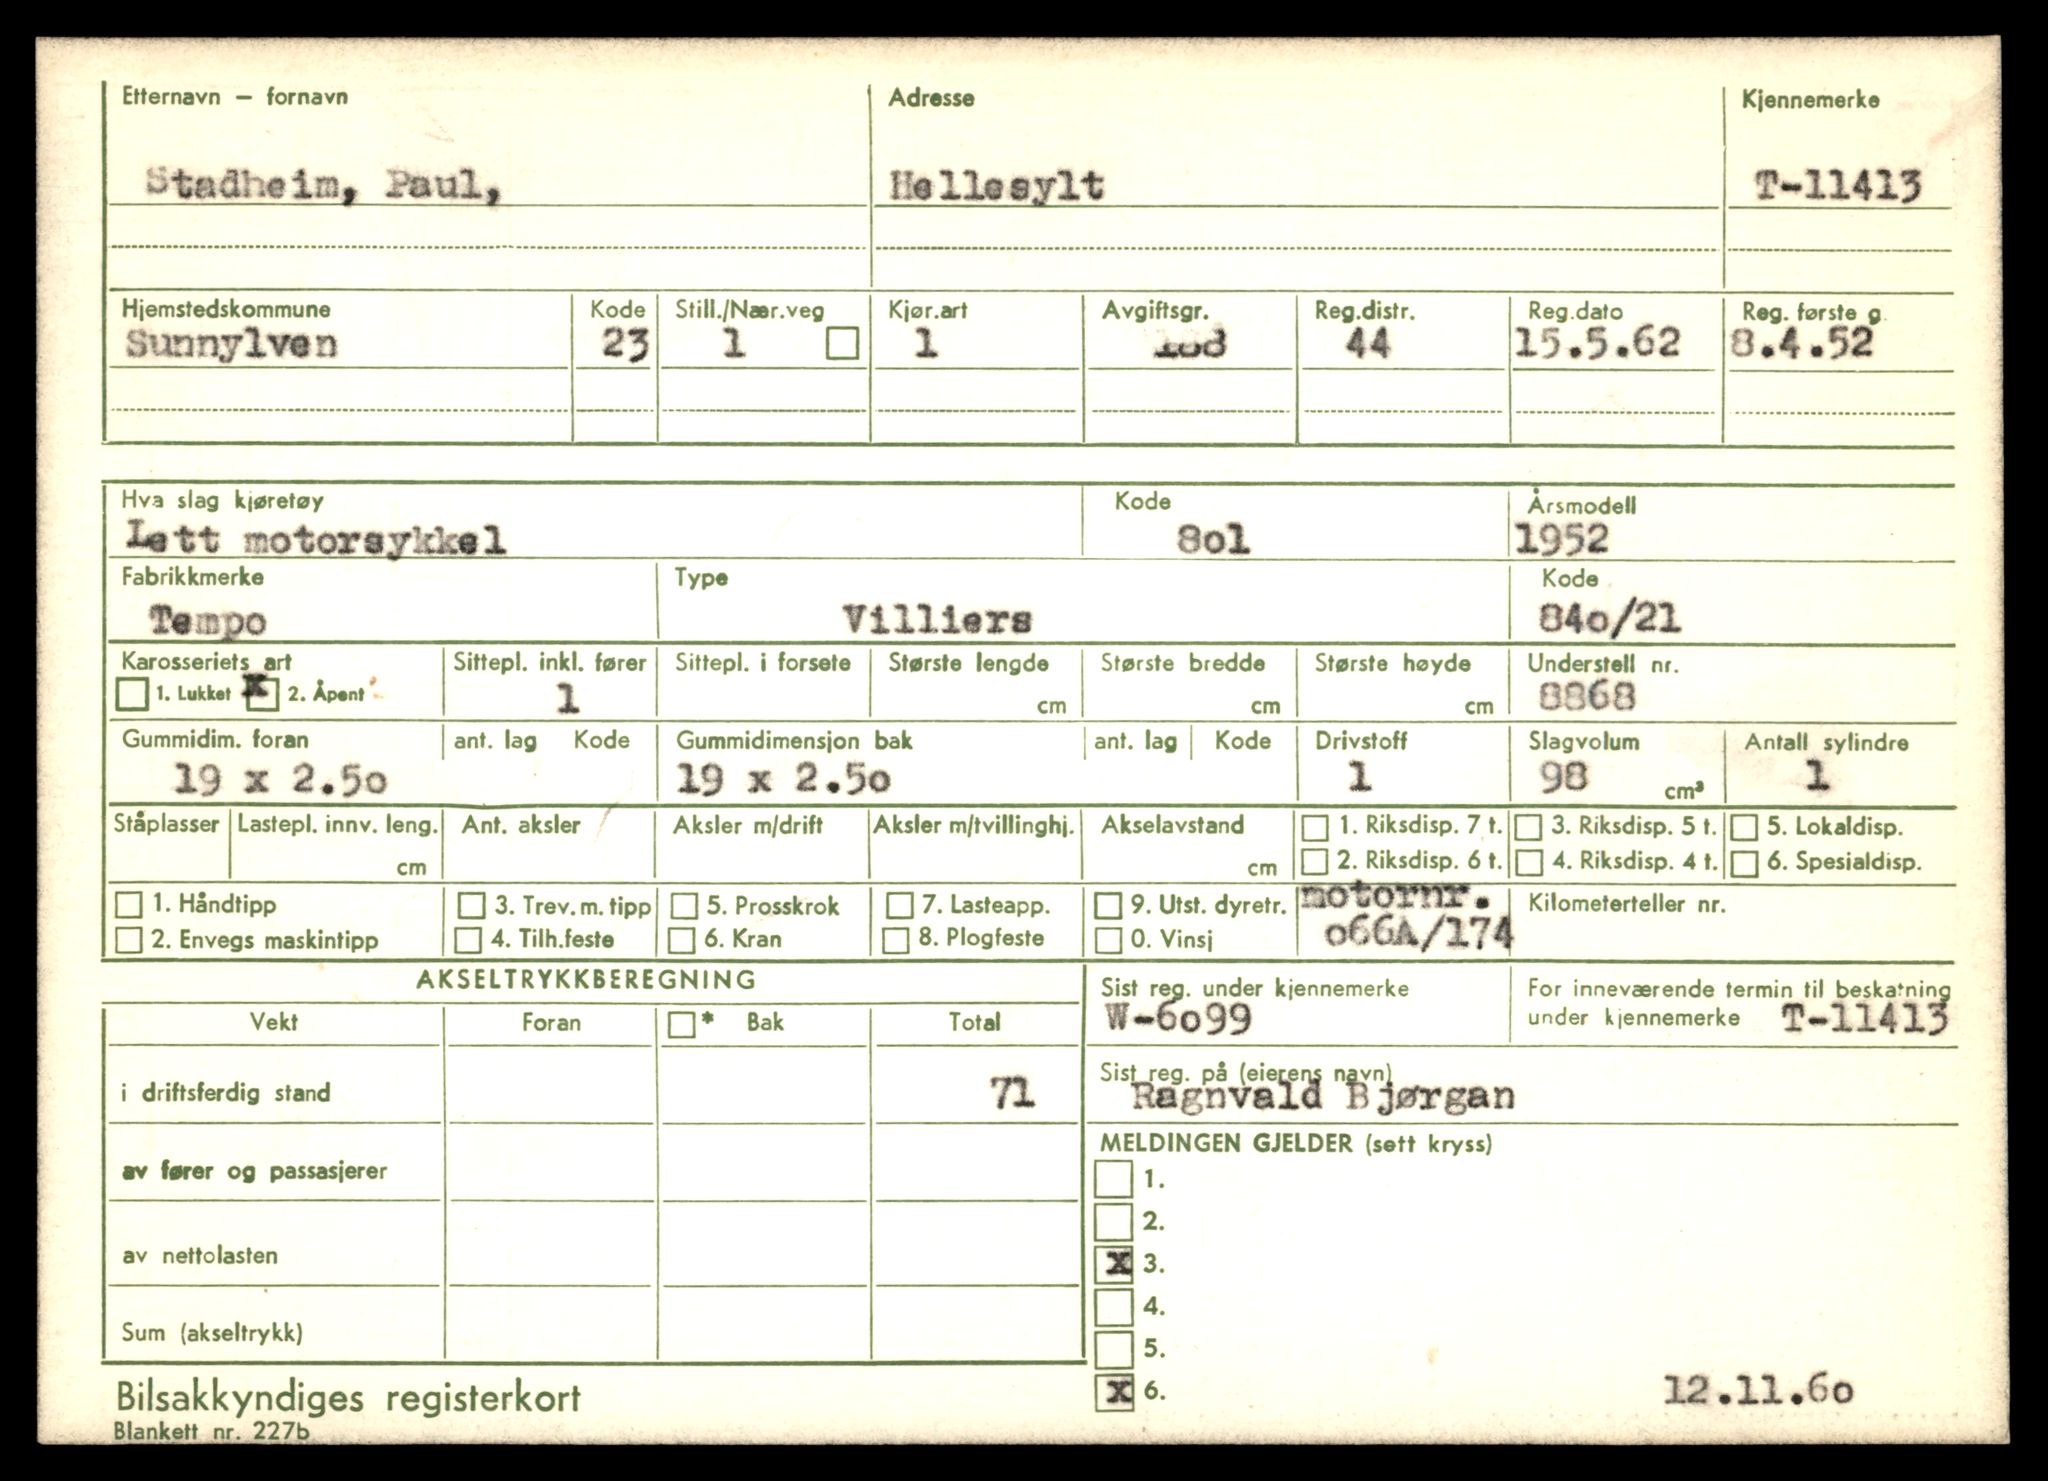 Etternavn – fornavn Adresse Kjennemerke
Stadheim, Paul, Hellesylt T-11413
Hjemstedskommune Kode Still./Nær.veg Kjør.art Avgiftsgr. Reg.distr. Reg.dato Reg. første g.
Sunnylven 23 1 1 188 44 15.5.62 8.4.52
Hva slag kjøretøy Kode Årsmodell
Lett motorsykkel 8o1 1952
Fabrikkmerke Type Kode
Tempo Villiers 84o/21
Karosseriets art Sittepl. inkl. fører Sittepl. i forsete Største lengde Største bredde Største høyde Understell nr.
1. Lukket x 2. Åpent 1 cm cm cm 8868
Gummidim. foran ant. lag Kode Gummidimensjon bak ant. lag Kode Drivstoff Slagvolum Antall sylindre
19 x 2.5o 19 x 2.5o 1 98 cm³ 1
Ståplasser Lastepl. innv. leng. Ant. aksler Aksler m/drift Aksler m/tvillinghj. Akselavstand 1. Riksdisp. 7 t. 3. Riksdisp. 5 t. 5. Lokaldisp.
cm cm 2. Riksdisp. 6 t. 4. Riksdisp. 4 t. 6. Spesialdisp.
1. Håndtipp 3. Trev. m. tipp 5. Prosskrok 7. Lasteapp. 9. Utst. dyretr. motornr. Kilometerteller nr.
2. Envegs maskintipp 4. Tilh.feste 6. Kran 8. Plogfeste 0. Vinsj o66A/174
AKSELTRYKKBEREGNING Sist reg. under kjennemerke For inneværende termin til beskatning
W-6o99 under kjennemerke T-11413
Vekt Foran * Bak Total
Sist reg. på (eierens navn)
i driftsferdig stand 71 Ragnvald Bjørgan
MELDINGEN GJELDER (sett kryss)
av fører og passasjerer 1.
2.
av nettolasten x 3.
4.
Sum (akseltrykk) 5.
x 6. 12.11.6o
Bilsakkyndiges registerkort
Blankett nr. 227b